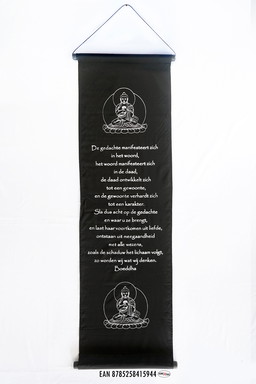 De gedachte manifesteert zich
in het woord,
het woord manifesteert zich
in de daad,
de daad ontwikkelt zich
tot een gewoonte,
en de gewoonte verhardt zich
tot een karakter.
Sla dus acht op de gedachte
en waar ze brengt,
en laat haar voortkomen uit liefde,
ontstaan uit meegaandheid
met alle wezens,
zoals de schaduw het lichaam volgt,
zo worden wij wat wij denken.
Boeddha
EAN 8785258415944